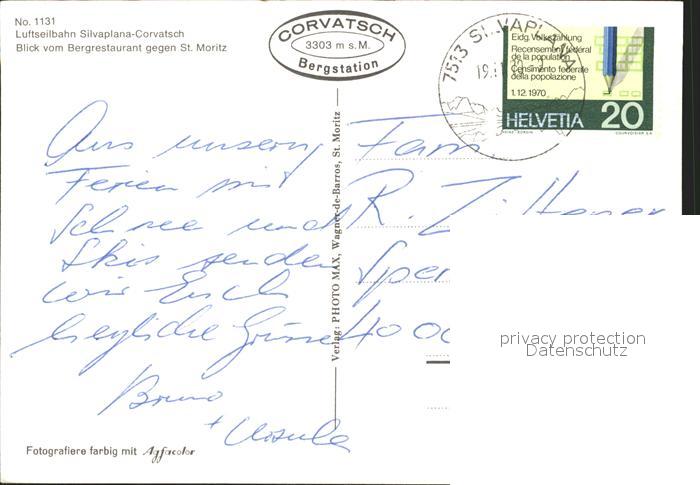 No. 1131
Luftseilbahn Silvaplana-Corvatsch
Blick vom Bergrestaurant gegen St. Moritz
CORVATSCH
3303 m s.M.
Bergstation
7513 SILVAPLANA
Eidg. Volkszählung
Recensement fédéral
de la population
Censimento federale
della popolazione
1.12.1970
HELVETIA 20
COURVOISIER S.A.
Aus unsern
Ferien mit
Schnee und
Skis senden
wir Euch
herzliche Grüsse
Bruno
+ Ursula
Fam.
R. Z
Spe
400
Verlag: PHOTO MAX, Wagner-de-Barros, St. Moritz
privacy protection
Datenschutz
Fotografiere farbig mit Agfacolor